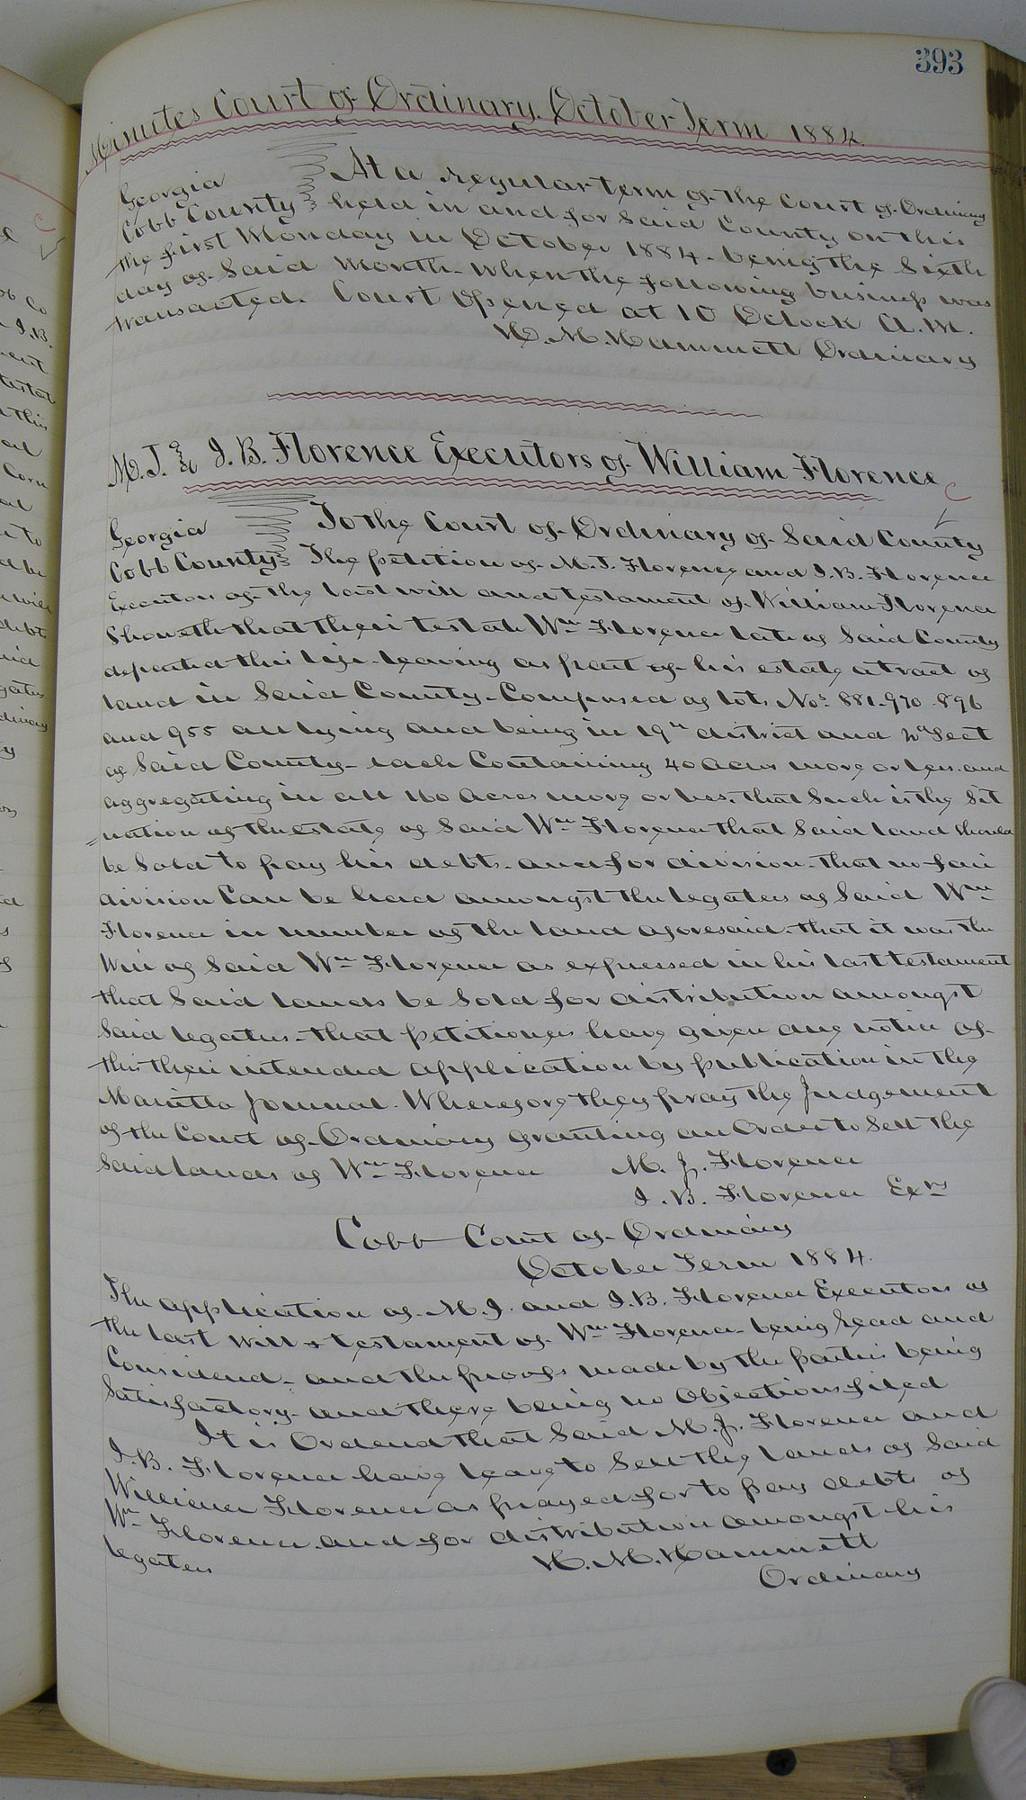 393
Minutes Court of Ordinary. October Term 1884.
Georgia At a regular term of the Court of Ordinary
Cobb County held in and for Said County on this
the first Monday in October 1884. being the Sixth
day of Said Month. When the following business was
transacted. Court Opened at 10 Oclock A.M.
H. M. Hammett Ordinary
M. J. & I. B. Florence Executors of William Florence
Georgia To the Court of Ordinary of Said County
Cobb County The petition of M. J. Florence and I. B. Florence
Executors of the last will and testament of William Florence
Showeth that their testate Wm Florence late of Said County
departed this life leaving as part of his estate a tract of
land in Said County. Composed of lots Nos 881. 970. 896
and 955 all lying and being in 19th district and 2nd Sect
of Said County. each Containing 40 acres more or less. and
aggregating in all 160 Acres more or less. that Such is the Sit
=uation of the estate of Said Wm Florence that Said land should
be Sold to pay his debts. and for division. that no fair
division Can be had amongst the legatees of Said Wm
Florence in number of the land aforesaid. that it was the
Will of Said Wm Florence as expressed in his last testament
that Said lands be Sold for distribution amongst
Said legatees. that petitioners have given due notice of
this their intended application by publication in the
Marietta Journal. Wherefore they pray the Judgement
of the Court of Ordinary granting an Order to Sell the
Said lands of Wm Florence M. J. Florence
I. B. Florence Exrs
Cobb Court of Ordinary
October Term 1884.
The application of M. J. and I. B. Florence Executors of
the last Will & testament of Wm Florence being head and
Considered. and the proofs made by the parties being
Satisfactory. and there being no Objections filed
It is Ordered that Said M. J. Florence and
I. B. Florence have leave to Sell the lands of Said
William Florence as prayed for to pay debts of
Wm Florence. and for distribution amongst his
legatees H. M. Hammett
Ordinary